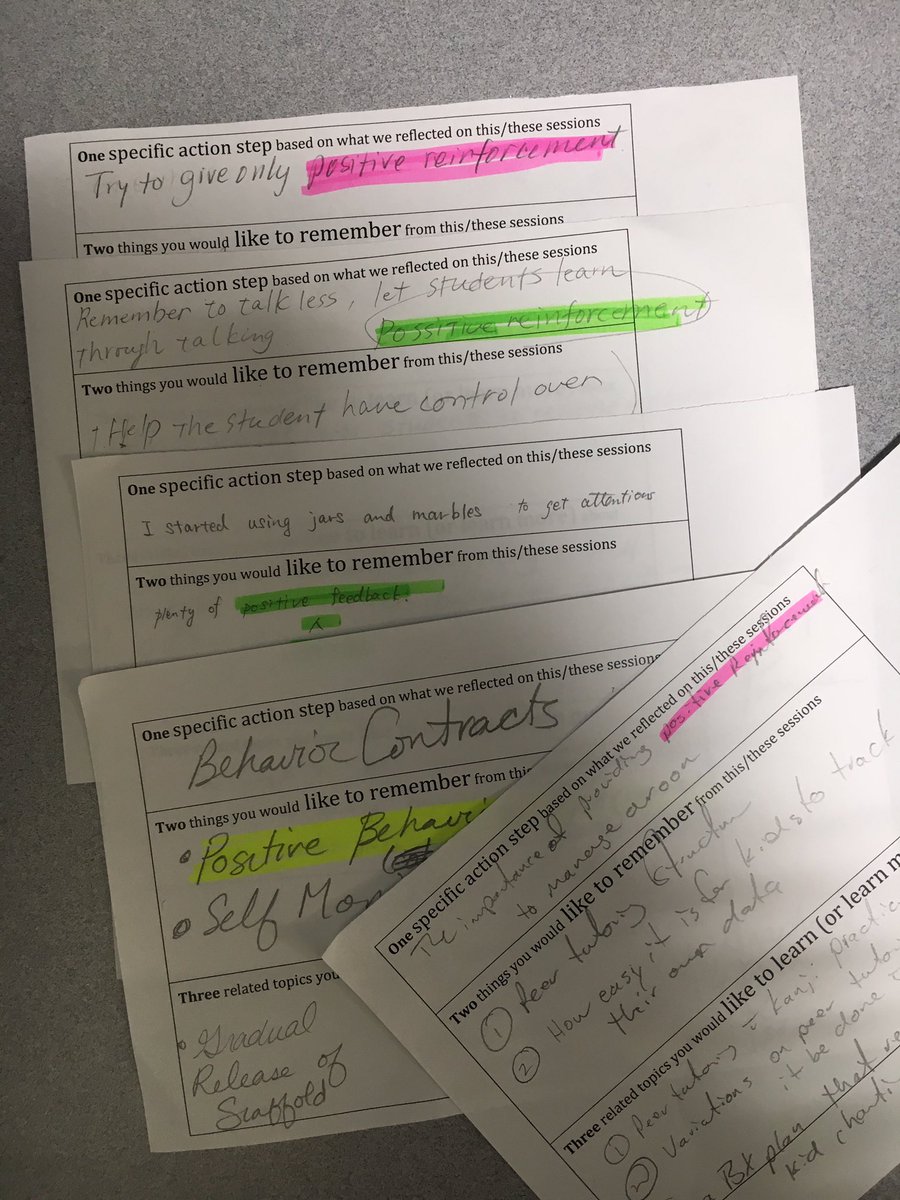 One specific action step based on what we reflected on this/these sessions
Try to give only positive reinforcement
Two things you would like to remember from this/these sessions
One specific action step based on what we reflected on this/these sessions
Remember to talk less, let students learn
through talking
possitive reinforcement
Two things you would like to remember from this/these sessions
Help the student have control over
One specific action step based on what we reflected on this/these sessions
I started using jars and marbles to get attentions
Two things you would like to remember from this/these sessions
plenty of positive feedback.
One specific action step based on what we reflected on this/these sessions
Behavior Contracts
Two things you would like to remember from this
• Positive Behavi
• Self Mon
Three related topics you
• Gradual
Release of
Scaffold
One specific action step based on what we reflected on this/these sessions
The importance of providing positive
to manage
Two things you would like to remember from this/these sessions
① Peer tutoring structure
② How easy it is for kids to track
their own data
Three related topics you would like to learn (or learn m
① Peer tutoring = Kanji practic
② Variations on peer tuto
it be done
BX plan that
kid